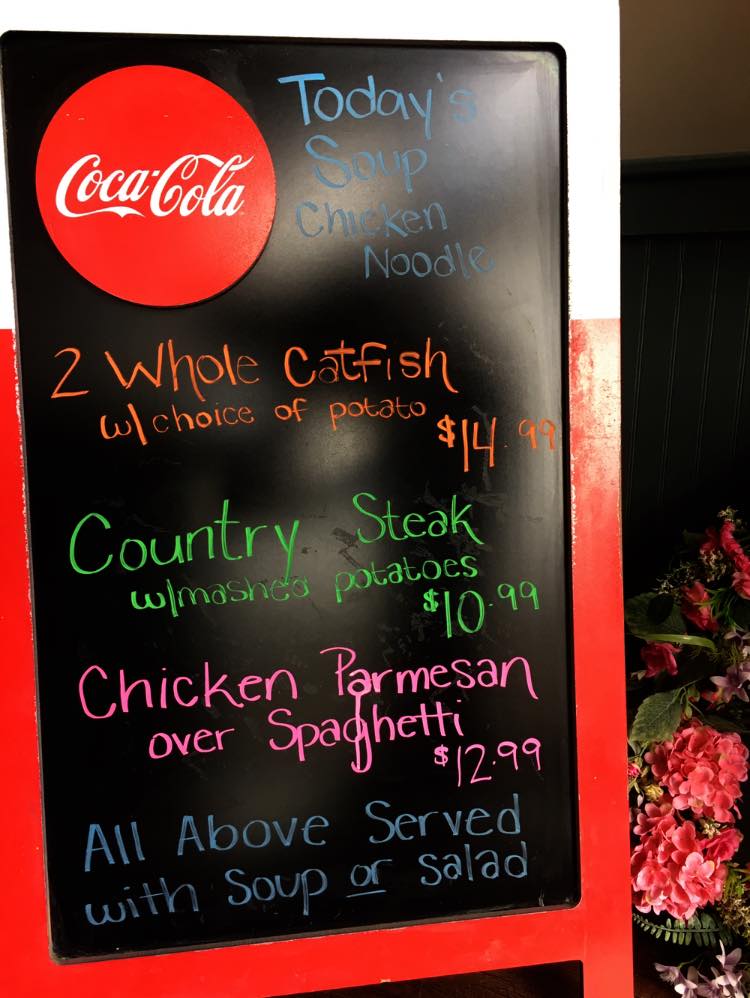 Coca-Cola
Today's
Soup
Chicken
Noodle
2 Whole Catfish
w/choice of potato
$14.99
Country Steak
w/mashed potatoes
$10.99
Chicken Parmesan
over Spaghetti
$12.99
All Above Served
with Soup or salad